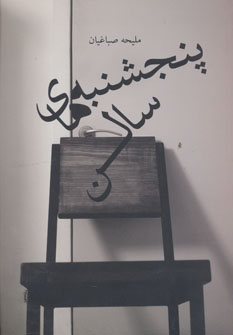 ملیحه صباغیان
پنجشنبه‌های
سالن